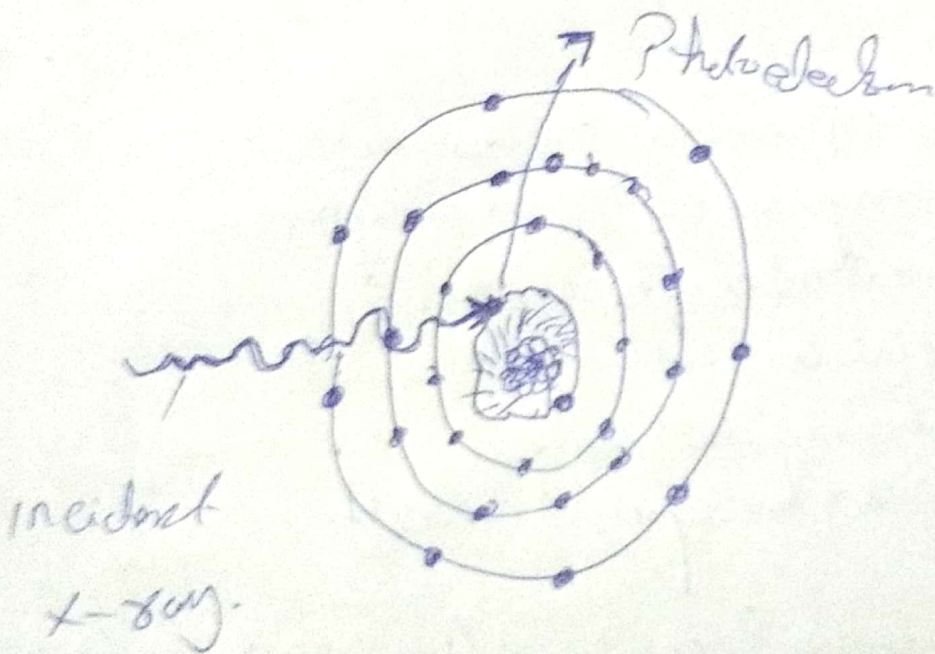 Photoelectron
incident
x-ray.